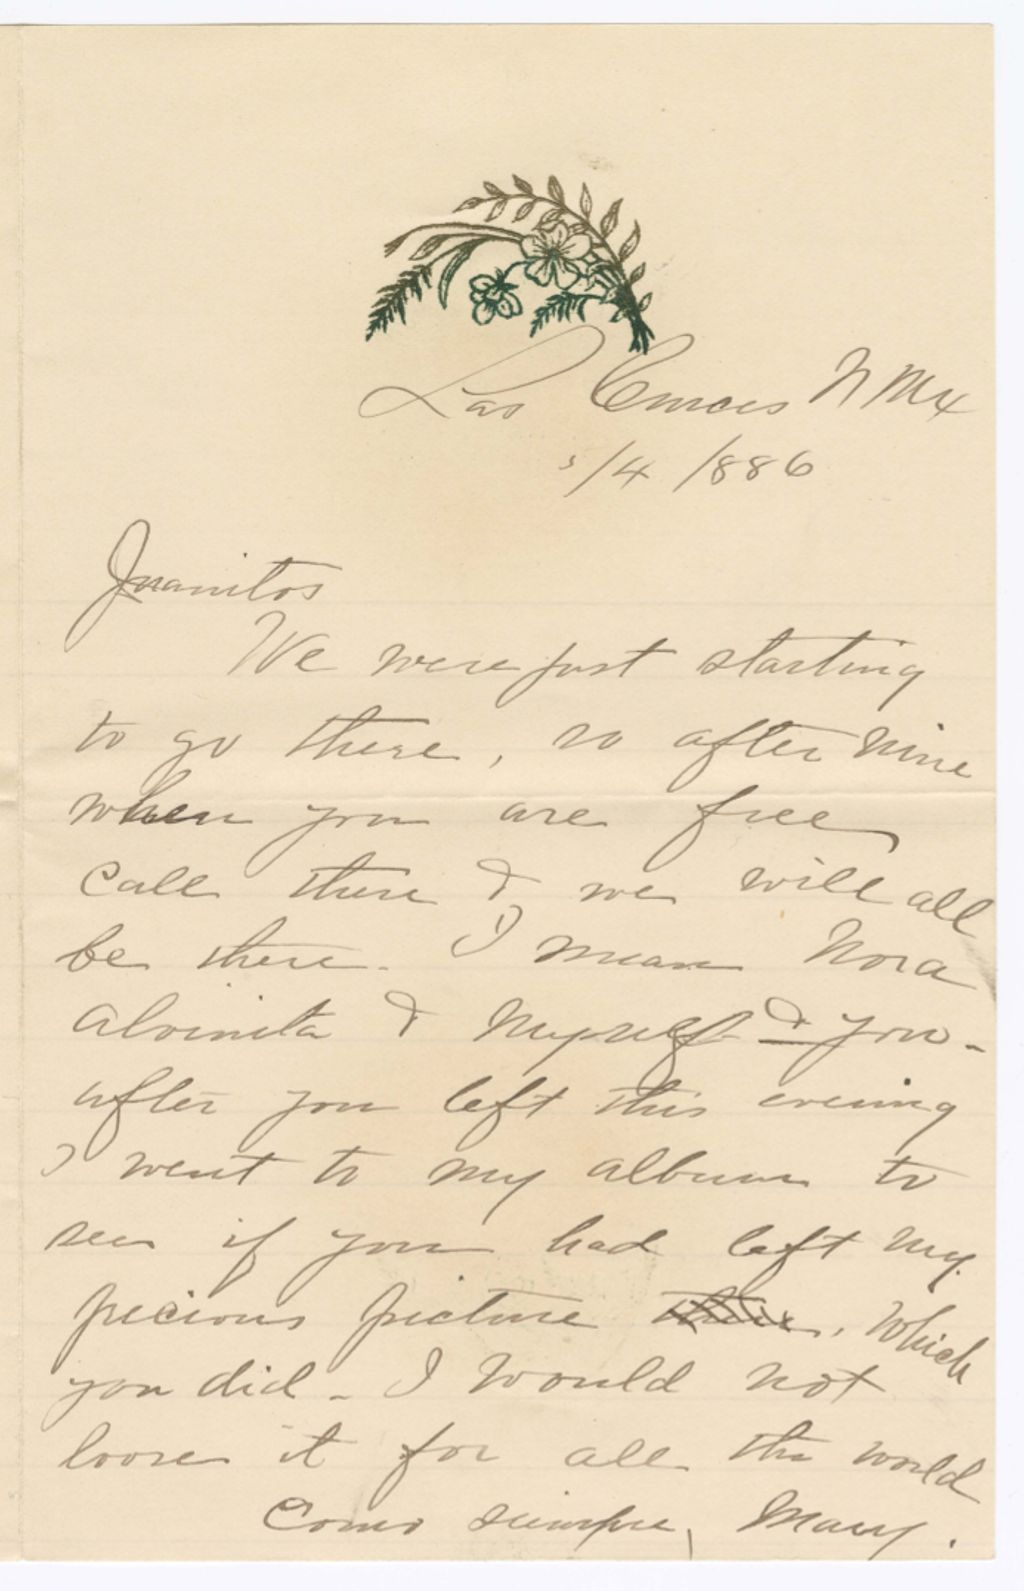 Las Cruces N Mx
5/4 /886
Juanitos
We were just starting
to go there, so after nine
when you are free
call there & we will all
be there. I mean Nora
Alvinita & Myself & you -
after you left this evening
I went to my album to
see if you had left my
precious picture there, which
you did - I would not
loose it for all the world
Como siempre, Mary.